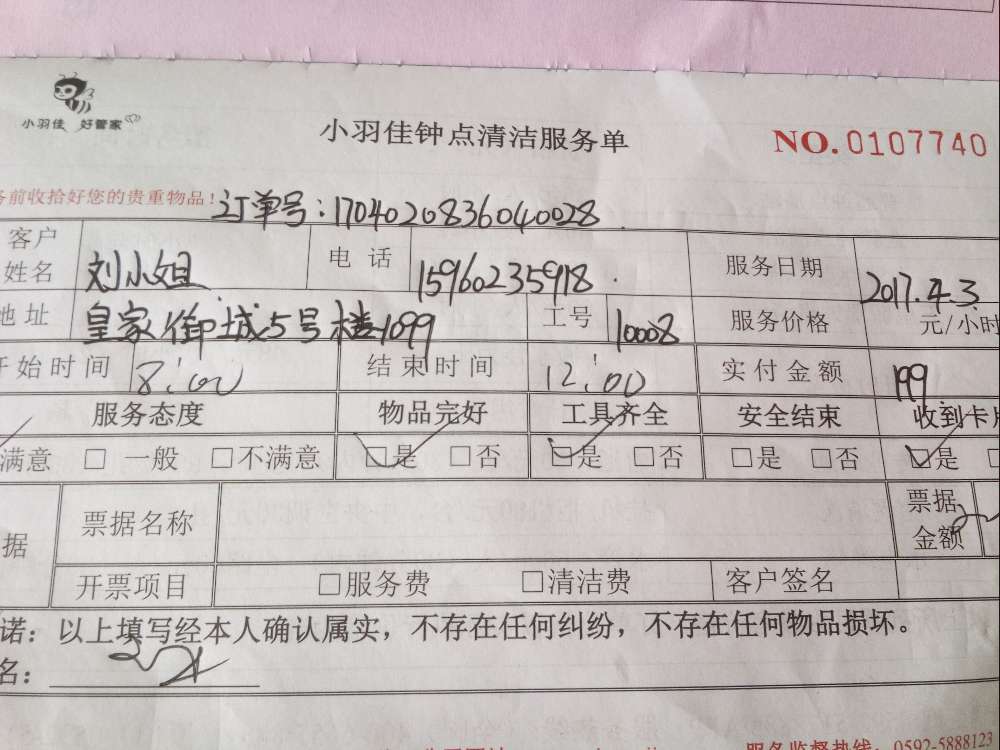 小羽佳 好管家
小羽佳钟点清洁服务单
NO.0107740
务前收拾好您的贵重物品!
订单号:1704020836040028
客户姓名 刘小姐 电话 15960235918 服务日期 2017.4.3
地址 皇家御城5号楼1099 工号 10008 服务价格 元/小时
开始时间 8:00 结束时间 12:00 实付金额 199
服务态度 物品完好 工具齐全 安全结束 收到卡片
满意 □一般 □不满意 ☑是 □否 ☑是 □否 □是 □否 ☑是
据 票据名称 票据金额
开票项目 □服务费 □清洁费 客户签名
诺:以上填写经本人确认属实,不存在任何纠纷,不存在任何物品损坏。
名:
服务监督热线 0592-5888123